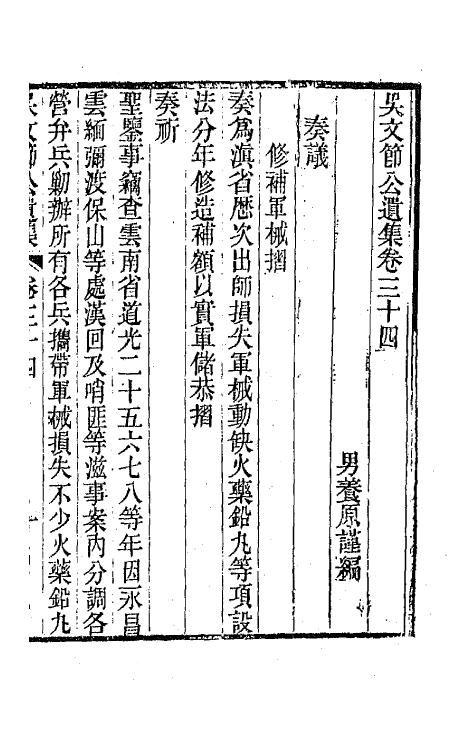 吳文節公遺集卷三十四
男養原謹編
奏議
修補軍械摺
奏爲滇省歷次出師損失軍械動缺火藥鉛丸等項設
法分年修造補額以實軍儲恭摺
奏祈
聖鑒事竊查雲南省道光二十五六七八等年因永昌
雲緬彌渡保山等處漢回及哨匪等滋事案內分調各
營弁兵勦辦所有各兵攜帶軍械損失不少火藥鉛丸
吳文節公遺集 卷三十四